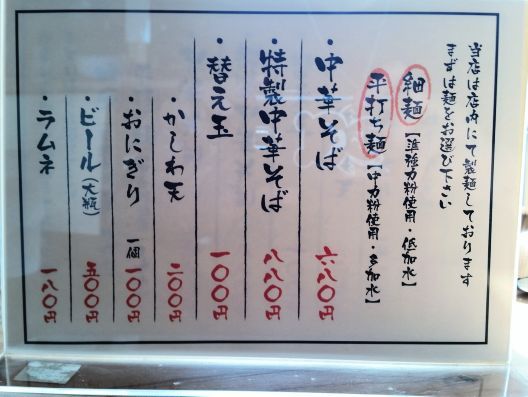 当店は店内にて製麺しております
まずは麺をお選び下さい
細麺【準強力粉使用・低加水】
平打ち麺【中力粉使用・多加水】
・中華そば 六八〇円
・特製中華そば 八八〇円
・替え玉 一〇〇円
・かしわ天 二〇〇円
・おにぎり 一個 一〇〇円
・ビール(大瓶) 五〇〇円
・ラムネ 一八〇円